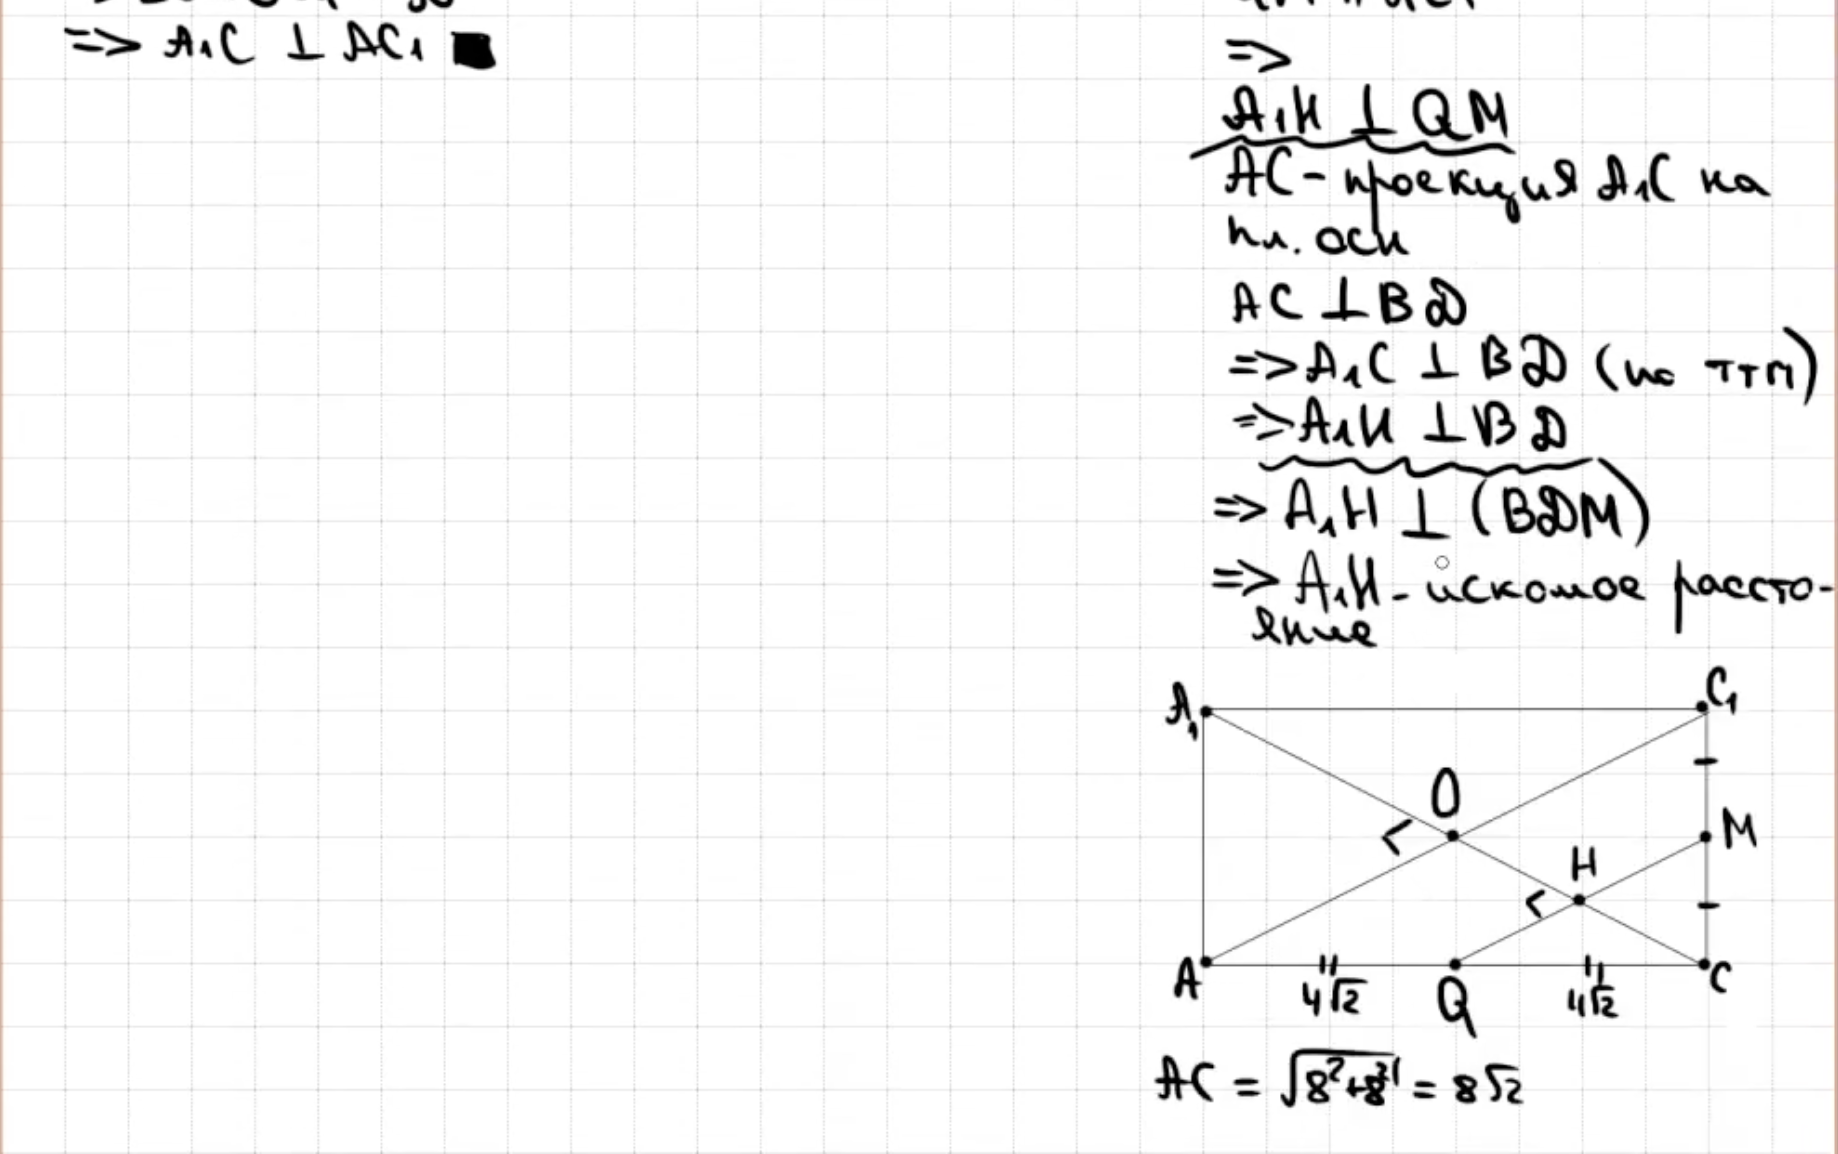 => A₁C ⊥ AC₁ ■
=>
A₁H ⊥ QM
AC - проекция A₁C на
пл. осн
AC ⊥ BD
=> A₁C ⊥ BD (по ТТП)
=> A₁H ⊥ BD
=> A₁H ⊥ (BDM)
=> A₁H - искомое рассто-
яние
A₁
C₁
O
M
H
A
4√2
Q
4√2
C
AC = √8²+8² = 8√2